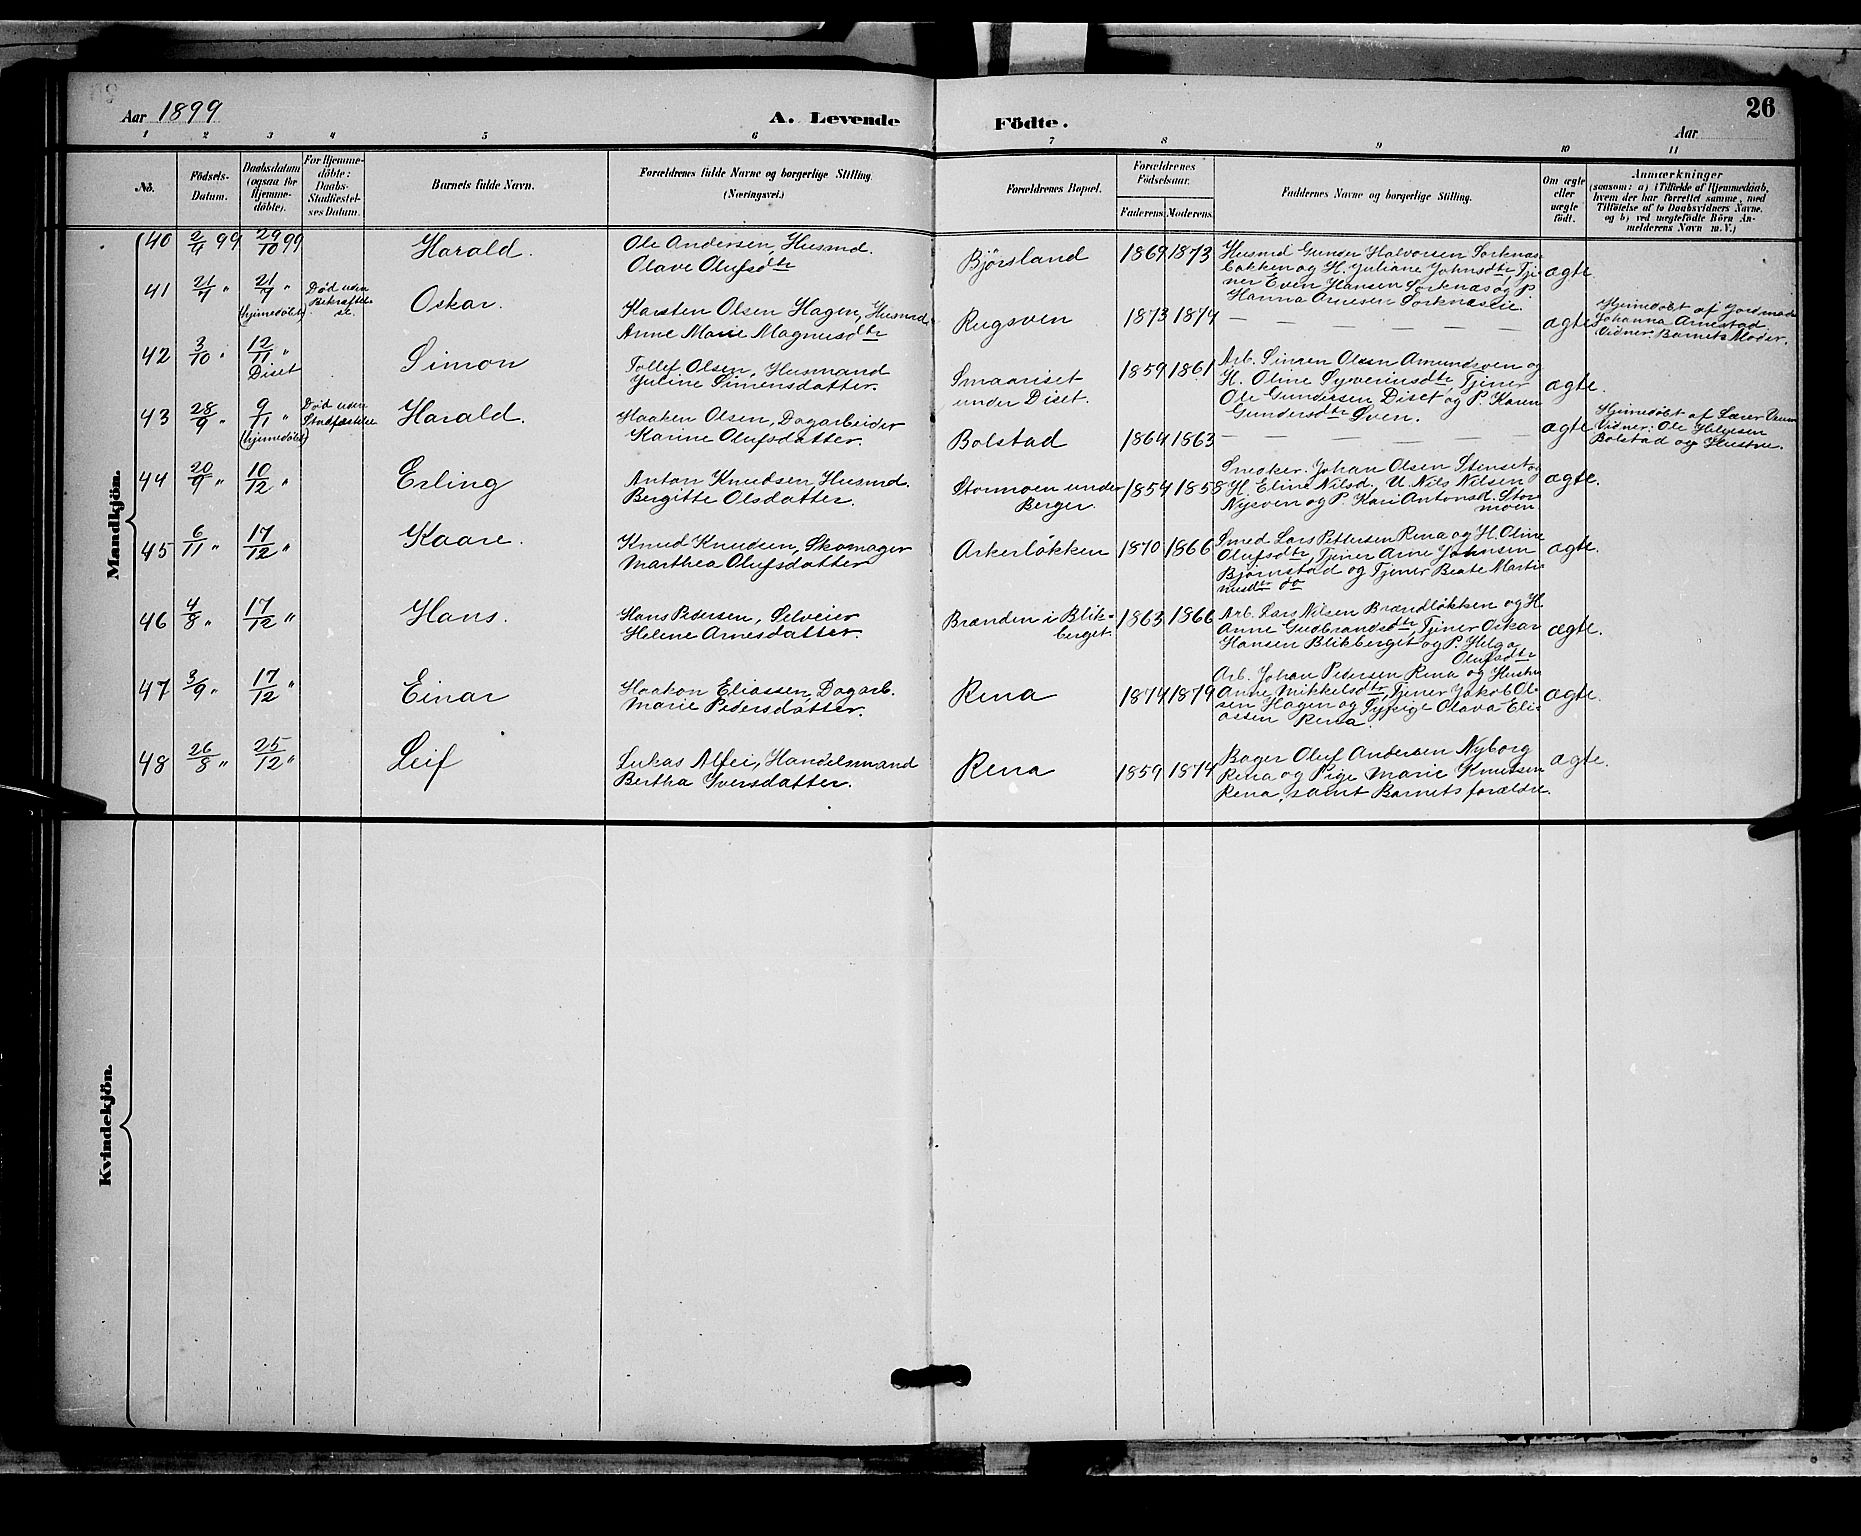 Aar 1899
A. Levende Födte.
26
Aar
1 2 3 4 5 6 7 8 9 10 11
No.
Födsels-Datum.
Daabsdatum (ogsaa for Hjemme-döbte).
For Hjemme-döbte: Daabs-Stadfæstel-ses Datum.
Barnets fulde Navn.
Forældrenes fulde Navne og borgerlige Stilling (Næringsvei.)
Forældrenes Bopæl.
Forældrenes Födselsaar.
Faderens. Moderens.
Faddernes Navne og borgerlige Stilling.
Om ægte eller uægte födt.
Anmærkninger
(saasom: a) i Tilfælde af Hjemmedaab,
hvem der har forrettet samme, med
Tilföielse af to Daabsvidners Navne,
og b) ved uægtefödte Börn An-
melderens Navn m. V.)
Mandkjön.
40 2/9 99 29/10 99 Harald.
Ole Andersen, Husmd.
Olave Olufsdtr
Bjørsland 1869 1873
Husmd Gunder Halvorsen Sorknæs-
bakken og H. Juliane Johnsdtr, Tje-
ner Even Hansen Sorknæs og P.
Hanna Arnesen Sorknæseie.
ægte.
41 21/7 " 21/7 " (hjemmedøbt) Død uden Bekræftelse. Oskar.
Karsten Olsen Hagen, Husmd
Anne Marie Magnusdtr
Rugsven 1873 1874
— — — — — — —
ægte
Hjemmedøbt af Jordmod.
Johanna Arnestad.
Vidner: Barnets Moder.
42 3/10 " 12/11 " Diset Simon
Tollef Olsen, Husmand
Juline Simensdatter.
Smaariset
under Diset. 1859 1861
Arb. Simen Olsen Amundsven og
H. Oline Syverinusdtr, Tjener
Ole Gundersen Diset og P. Karen
Gundersdtr Øven.
ægte.
43 28/9 " 9/11 " (hjemmedøbt) Død uden Stadfæstelse Harald.
Haaken Olsen, Dagarbeider
Karine Olufsdatter.
Bolstad 1864 1863
— — — — — — —
ægte
Hjemmedøbt af Lærer
Vidner: Ole Helgesen
Bolstad og Hustru.
44 20/9 " 10/12 " Erling
Anton Knudsen Husmd.
Bergitte Olsdatter.
Stormoen under
Berger. 1854 1858
Snedker Johan Olsen Stenset og
H. Eline Nilsd. U. Nils Nilsen
Nysven og P. Kari Antonsd. Stor-
moen.
ægte.
45 6/11 " 17/12 " Kaare.
Knud Knudsen, Skomager
Marthea Olufsdatter
Arkerløkken 1870 1866
Smed Lars Pettersen Rena og H. Oline
Olufsdtr, Tjener Arne Johnsen
Bjørnstad og Tjener Beate Marti-
nusdtr do
ægte.
46 4/8 " 17/12 " Hans.
Hans Pedersen, Selveier
Helene Arnesdatter.
Brænden i Blik-
berget. 1863 1866
Arb. Lars Nilsen Brændløkken og H.
Anne Gudbrandsdtr, Tjener Oskar
Hansen Blikberget og P. Helga
Olufsdtr
ægte.
47 3/9 " 17/12 " Einar
Haakon Eliassen, Dagarb.
Marie Pedersdatter.
Rena 1874 1879
Arb. Johan Pedersen Rena og Hustru
Anne Mikkelsdtr, Tjener Jakob Ol-
sen Hagen og Tj.pige Olava Eli-
assen Rena.
ægte.
48 26/8 " 25/12 " Leif
Lukas Alfei, Handelsmand
Bertha Iversdatter.
Rena 1859 1874
Bager Oluf Andersen Nyborg
Rena og Pige Marie Knudsen
Rena, samt Barnets forældre.
ægte.
Kvindekjön.